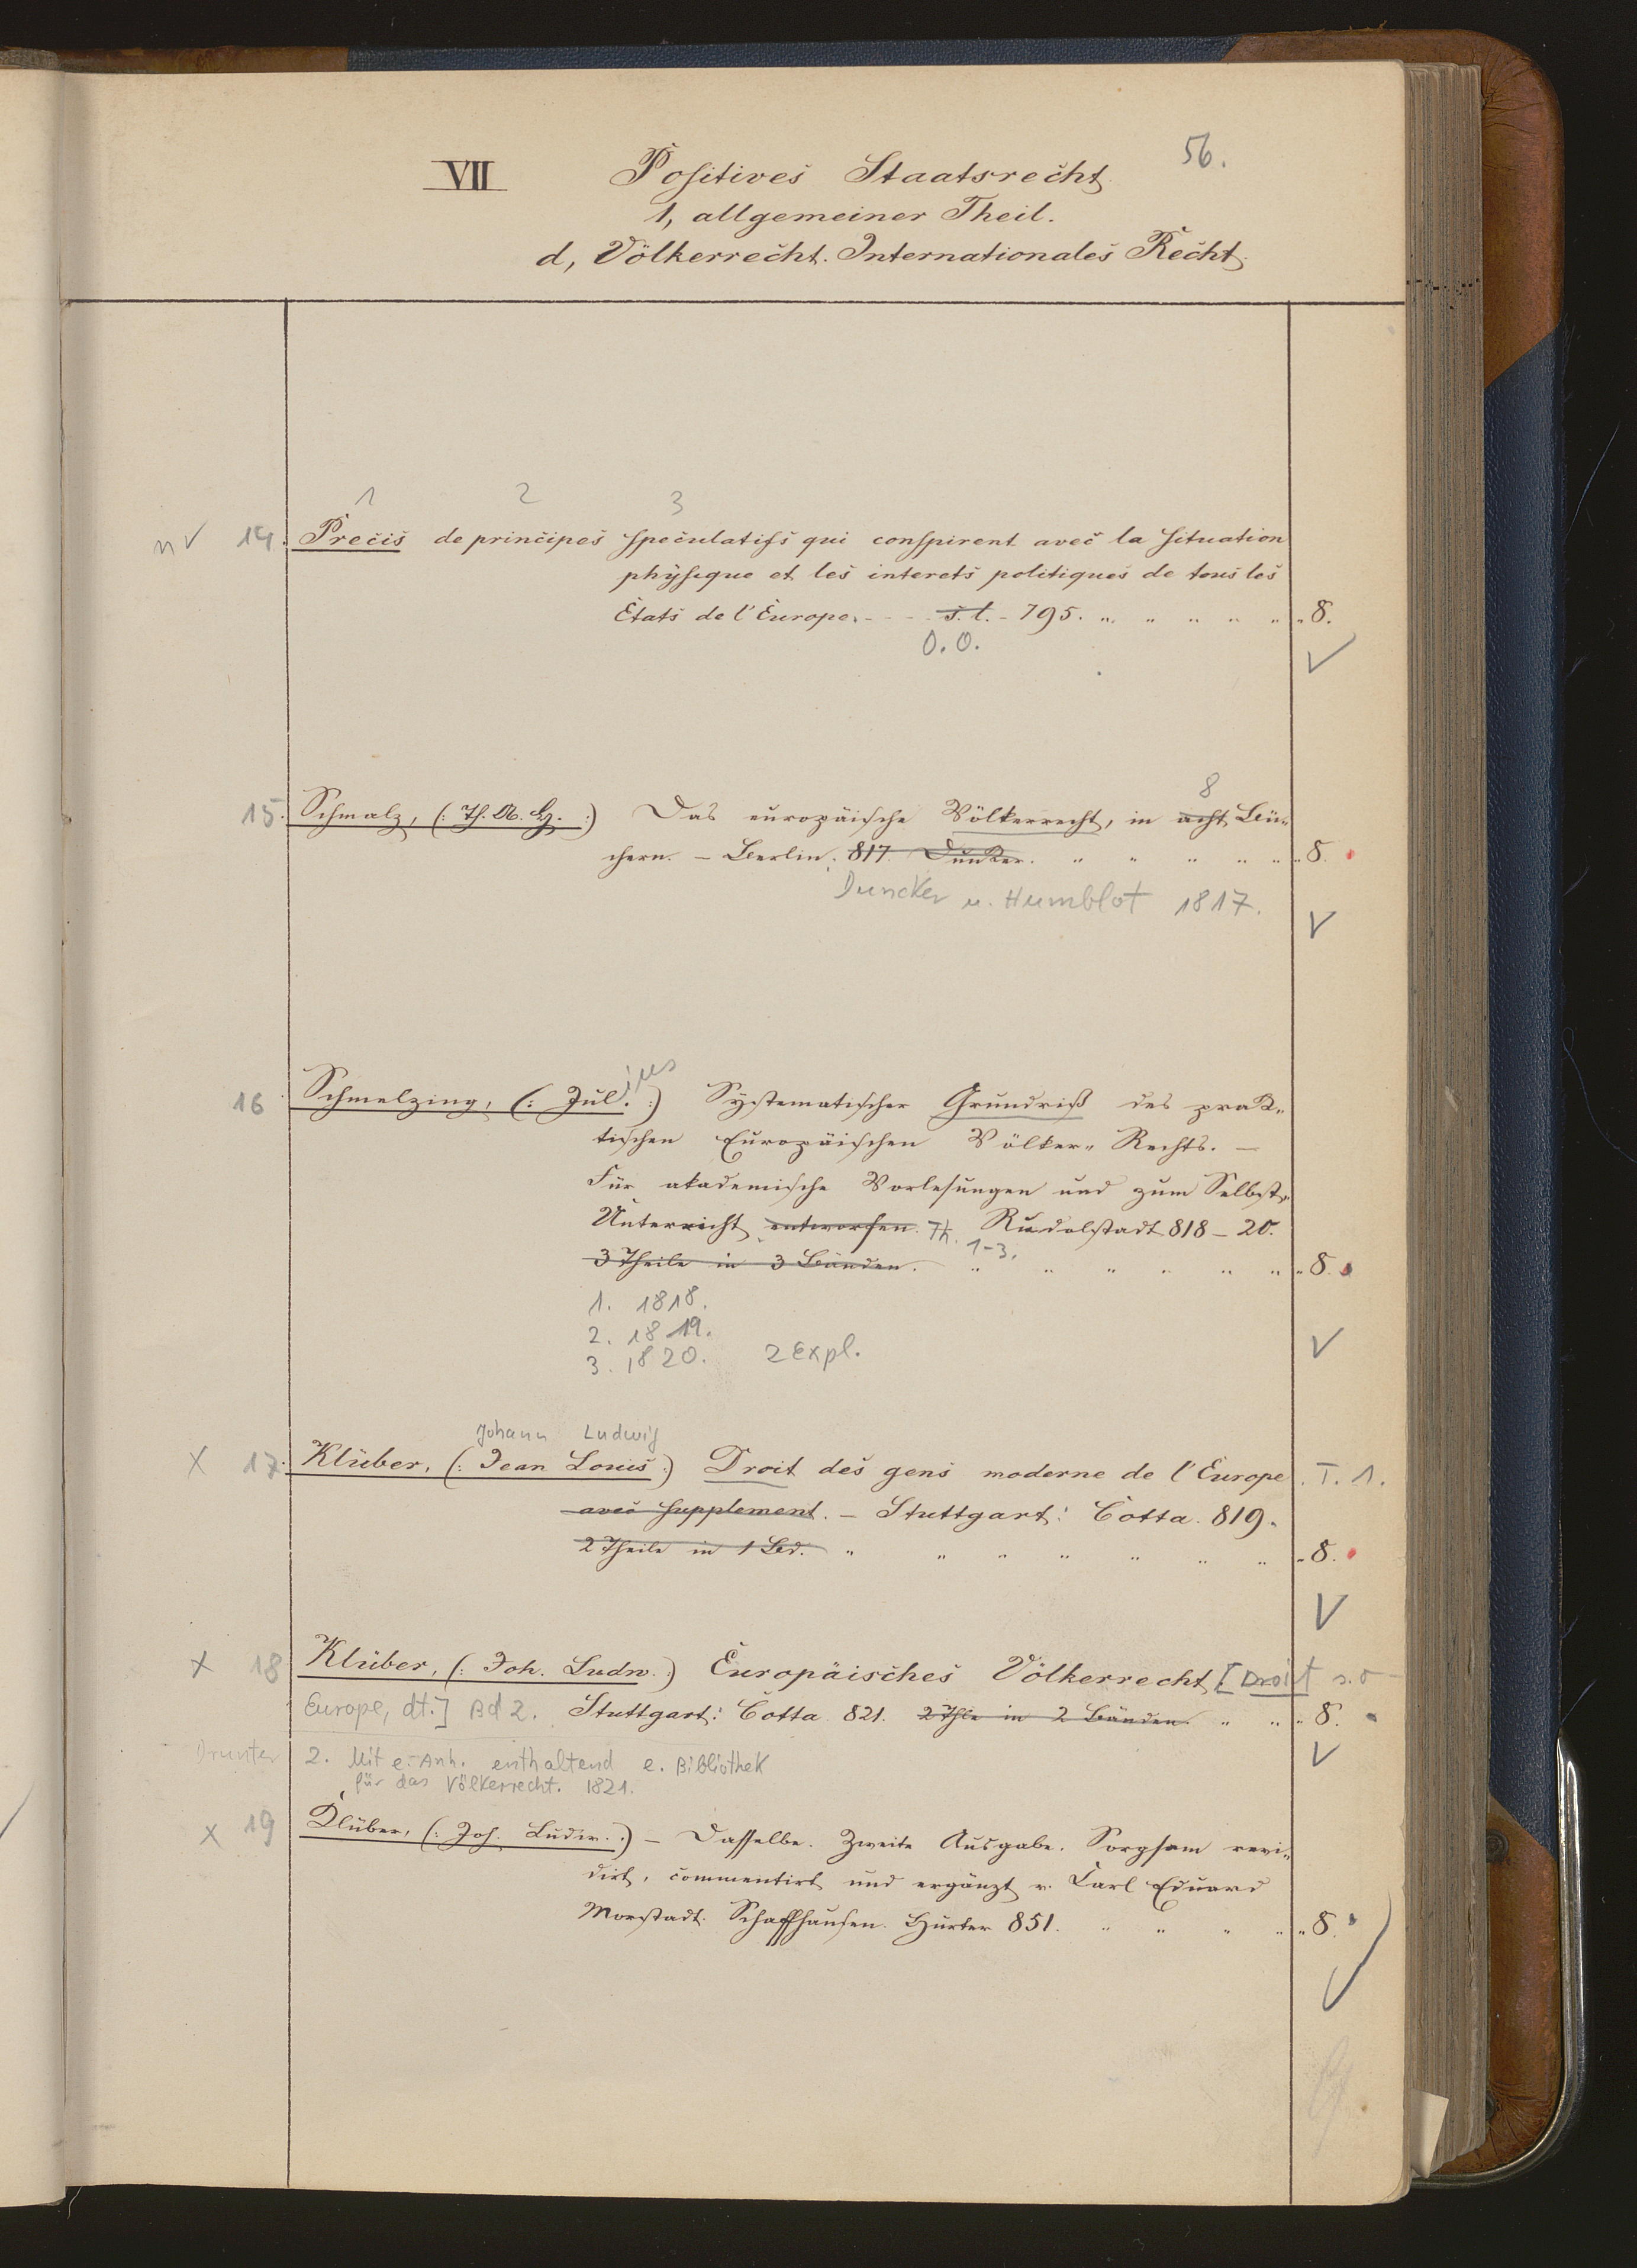 56.
VII Positives Staatsrecht
1, allgemeiner Theil.
d, Völkerrecht. Internationales Recht.
1 2 3
n v 14. Precis de principes speculatifs qui conspirent avec la situation
physique et les interets politiques de tous les
États de l'Europe. - - - s. l. - 795. „ „ „ „ „ „ 8.
O. O.
8
15. Schmalz, (: Th. A. H. :) Das europäische Völkerrecht, in acht Bü-
chern. - Berlin. 817. Dunker. „ „ „ „ „ „ 8.
Duncker u. Humblot 1817.
ius
16 Schmelzing, (: Jul. :) Systematischer Grundriß des prak-
tischen Europäischen Völker-Rechts. —
Für akademische Vorlesungen und zum Selbst-
Unterricht entworfen. Th. Rudolstadt 818 - 20.
1-3.
3 Theile in 3 Bänden. „ „ „ „ „ „ „ 8.
1. 1818.
2. 1819.
3. 1820. 2 Expl.
Johann Ludwig
x 17. Klüber, (: Jean Louis :) Droit des gens moderne de l'Europe. T. 1.
avec supplement. - Stuttgart: Cotta. 819.
2 Theile in 1 Bd. „ „ „ „ „ „ „ „ 8.
x 18 Klüber, (: Joh. Ludw. :) Europäisches Völkerrecht [Droit s. o
Europe, dt.] Bd 2. Stuttgart: Cotta 821. 2 Thle in 2 Bänden. „ „ „ 8.
Drunter 2. Mit e. Anh. enthaltend e. Bibliothek
für das Völkerrecht. 1821.
x 19 Klüber, (: Joh. Ludw. :) - Dasselbe. Zweite Ausgabe. Sorgsam revi-
dirt, commentirt und ergänzt v. Carl Eduard
Morstadt. Schaffhausen. Hurter 851. „ „ „ „ „ 8.